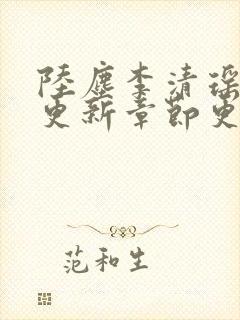 陸塵李清瑶
更新章節更
范和生